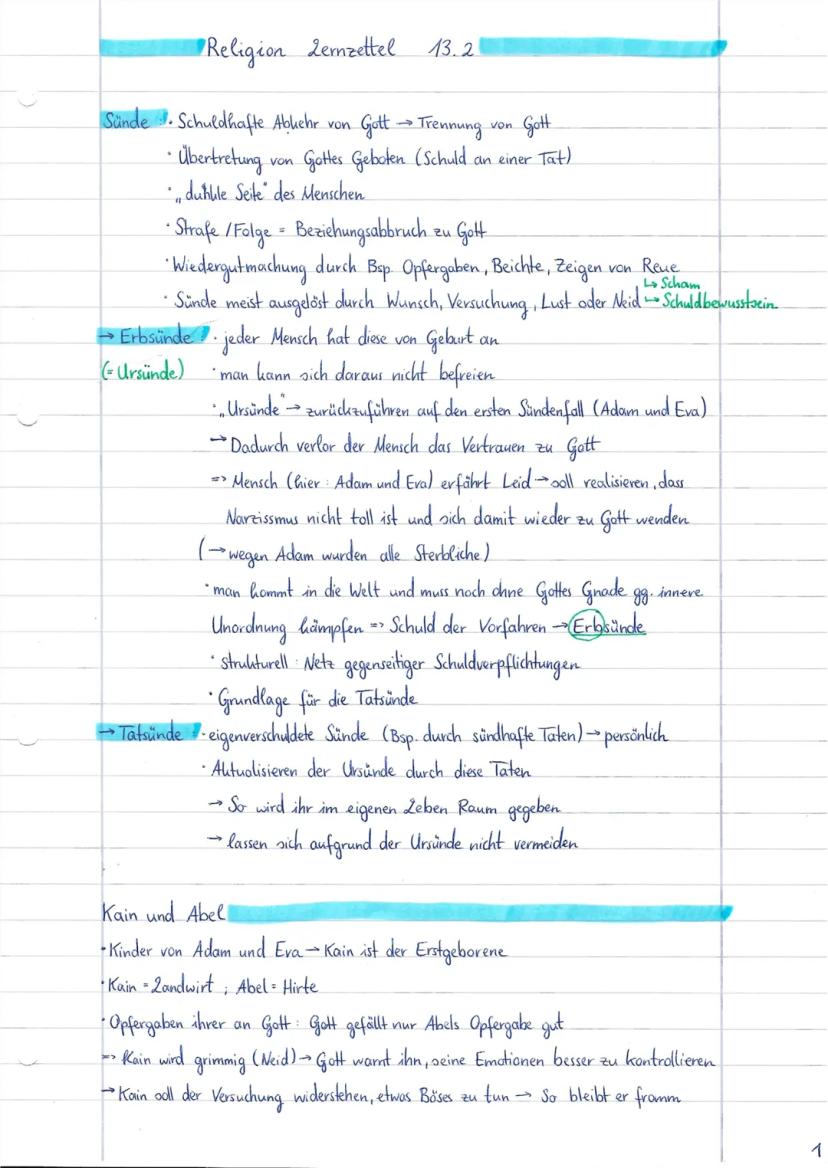 Religion Lernzettel 13.2
Sünde: · Schuldhafte Abkehr von Gott → Trennung von Gott
· Übertretung von Gottes Geboten (Schuld an einer Tat)
· „dunkle Seite" des Menschen
· Strafe / Folge = Beziehungsabbruch zu Gott
· Wiedergutmachung durch Bsp. Opfergaben, Beichte, Zeigen von Reue
↳ Scham
· Sünde meist ausgelöst durch Wunsch, Versuchung, Lust oder Neid ↳ Schuldbewusstsein
→ Erbsünde: · jeder Mensch hat diese von Geburt an
(= Ursünde) · man kann sich daraus nicht befreien
· „Ursünde" → zurückzuführen auf den ersten Sündenfall (Adam und Eva)
→ Dadurch verlor der Mensch das Vertrauen zu Gott
=> Mensch (hier: Adam und Eva) erfährt Leid → soll realisieren, dass
Narzissmus nicht toll ist und sich damit wieder zu Gott wenden
(→ wegen Adam wurden alle Sterbliche)
· man kommt in die Welt und muss noch ohne Gottes Gnade gg. innere
Unordnung kämpfen => Schuld der Vorfahren → Erbsünde
· strukturell: Netz gegenseitiger Schuldverpflichtungen
· Grundlage für die Tatsünde
→ Tatsünde: · eigenverschuldete Sünde (Bsp. durch sündhafte Taten) → persönlich
· Aktualisieren der Ursünde durch diese Taten
→ So wird ihr im eigenen Leben Raum gegeben
→ lassen sich aufgrund der Ursünde nicht vermeiden
Kain und Abel
· Kinder von Adam und Eva → Kain ist der Erstgeborene
· Kain = Landwirt ; Abel = Hirte
· Opfergaben ihrer an Gott: Gott gefällt nur Abels Opfergabe gut
=> Kain wird grimmig (Neid) → Gott warnt ihn, seine Emotionen besser zu kontrollieren
→ Kain soll der Versuchung widerstehen, etwas Böses zu tun → So bleibt er fromm
1